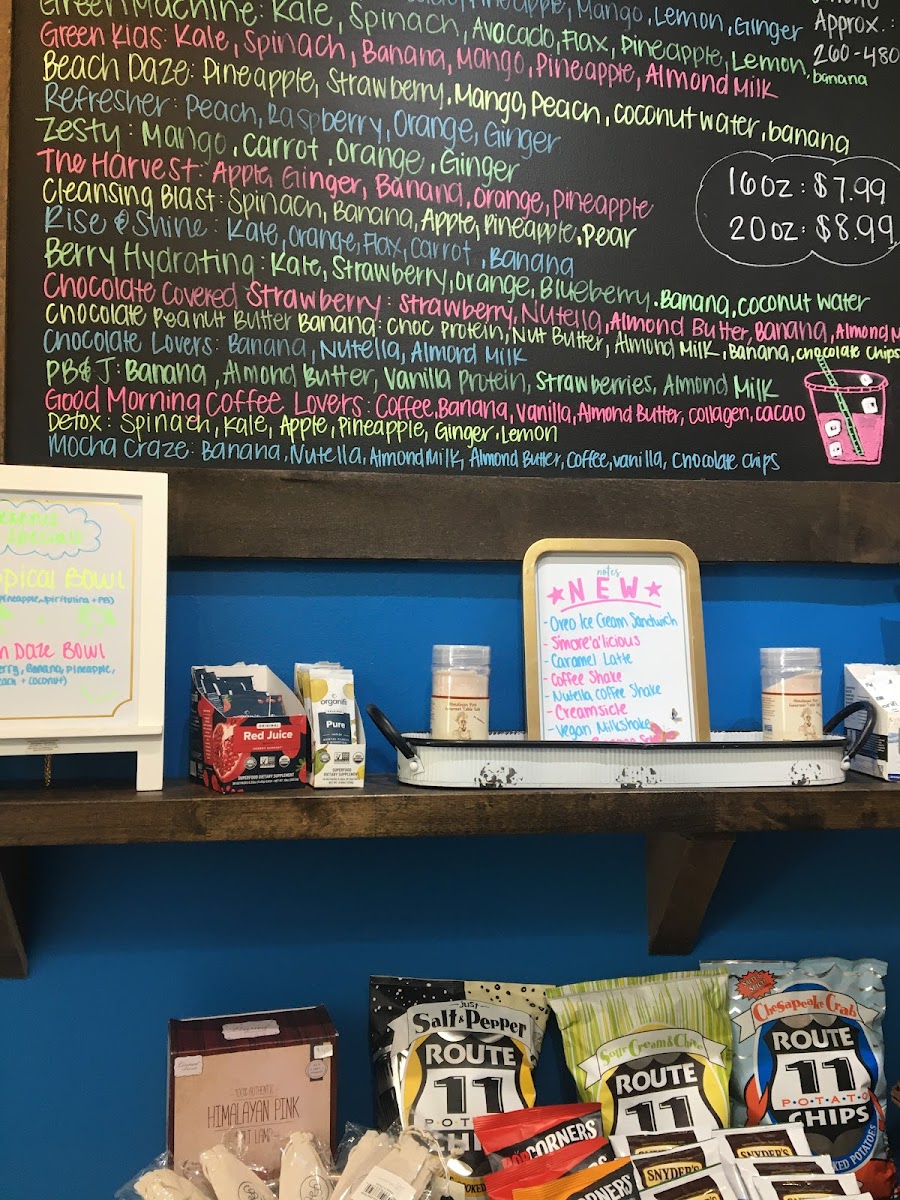 Green Machine: Kale, Spinach, Avocado, Flax, Pineapple, Lemon,
Pineapple, Mango, Lemon, Ginger
banana
Green Kids: Kale, Spinach, Banana, Mango, Pineapple, Almond Milk
Beach Daze: Pineapple, Strawberry, Mango, Peach, coconut water, banana
Refresher: Peach, Raspberry, Orange, Ginger
Zesty: Mango, Carrot, orange, Ginger
The Harvest: Apple, Ginger, Banana, orange, Pineapple
Cleansing Blast: Spinach, Banana, Apple, Pineapple, Pear
Rise & Shine: Kale, orange, Flax, Carrot, Banana
Berry Hydrating: Kale, Strawberry, orange, Blueberry, Banana, coconut water
Chocolate Covered Strawberry: Strawberry, Nutella, Almond Butter, Banana, Almond M
Chocolate Peanut Butter Banana: choc Protein, Nut Butter, Almond Milk, Banana, chocolate chips
Chocolate Lovers: Banana, Nutella, Almond Milk
PB&J: Banana, Almond Butter, Vanilla Protein, Strawberries, Almond Milk
Good Morning Coffee Lovers: Coffee, Banana, Vanilla, Almond Butter, collagen, cacao
Detox: Spinach, Kale, Apple, Pineapple, Ginger, Lemon
Mocha Craze: Banana, Nutella, Almond Milk, Almond Butter, Coffee, vanilla, chocolate chips
Approx.:
260-480
16oz: $7.99
20oz: $8.99
Specials
opical Bowl
pineapple, spirulina + PB)
n Daze Bowl
erry, Banana, pineapple,
each + coconut)
notes
NEW
- Oreo Ice Cream Sandwich
- S'more'a'licious
- Caramel Latte
- Coffee Shake
- Nutella Coffee Shake
- Creamsicle
- Vegan Milkshake
ORIGINAL
Red Juice
SUPERFOOD DIETARY SUPPLEMENT
organifi
Pure
Himalayan Pink
Gourmet Table Salt
100% AUTHENTIC
HIMALAYAN PINK
LAMP
JUST
Salt & Pepper
ROUTE
11
POT
CHI
Sour Cream & Chive
ROUTE
11
Chesapeake Crab
ROUTE
11
POTATO
CHIPS
KED POTATOES
POPCORNERS
CORNERS
SNYDER'S
SNYDER'S